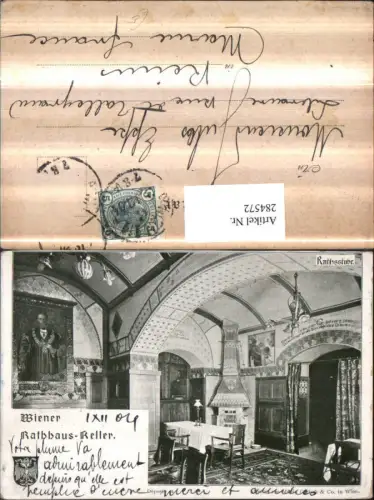 Monsieur Jules Eppe
Libraire rue de Talleyrand
Reims
Marne France
Artikel Nr.
284572
Rathsstube.
Wiener
Rathhaus-Keller.
1 XII 04
Votre plume va
admirablement
depuis qu'elle est
remplie d'encre merci et
& Co. in Wien.